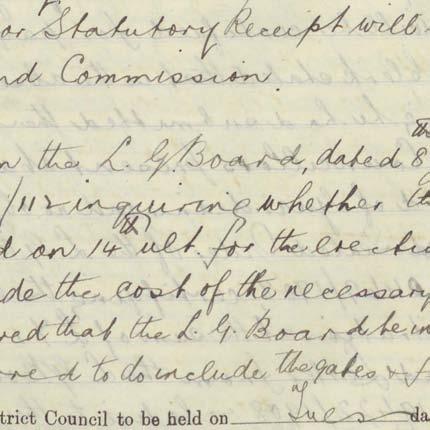 or Statutory Receipt will
nd Commission
n the L. G. Board, dated 8
/112 inquiring whether
d on 14th ult. for the erectio
de the cost of the necessary
red that the L. G. Board be in
red to do include the gates &
trict Council to be held on Tues da